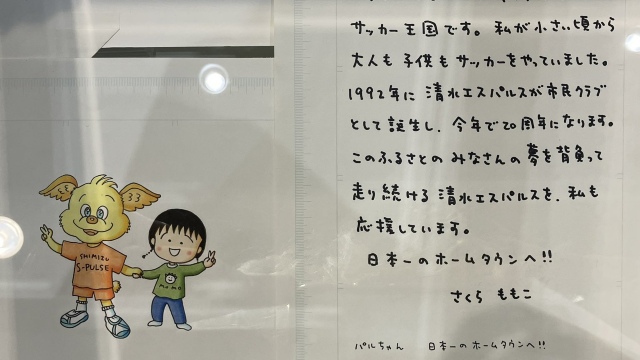 サッカー王国です。私が小さい頃から
大人も子供もサッカーをやっていました。
1992年に清水エスパルスが市民クラブ
として誕生し、今年で20周年になります。
このふるさとのみなさんの夢を背負って
走り続ける清水エスパルスを、私も
応援しています。
日本一のホームタウンへ!!
さくらももこ
パルちゃん 日本一のホームタウンへ!!
SHIMIZU
S-PULSE